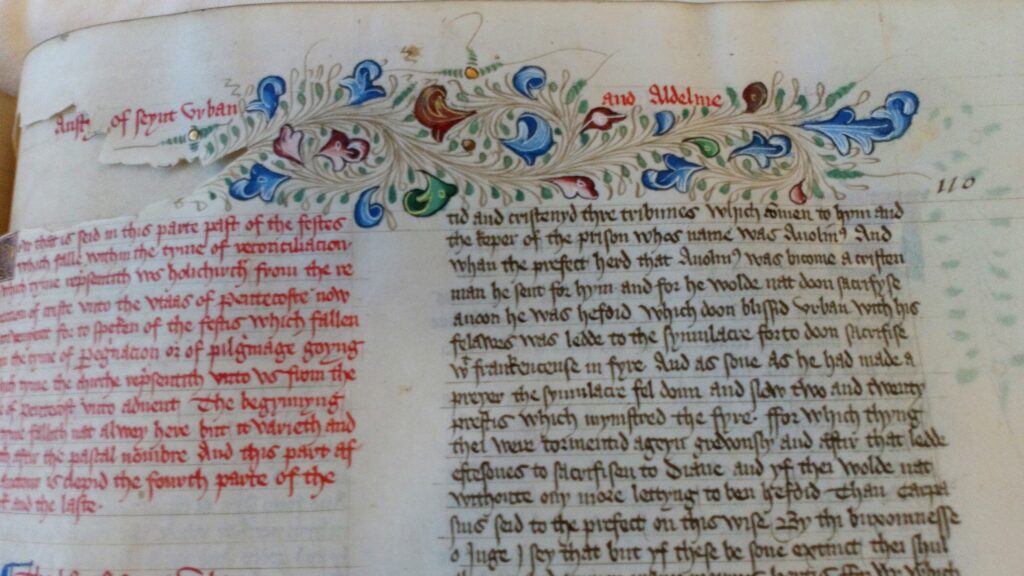 of seynt Urban
and Aldelme
110
that is seid in this parte past of the festes
which falle within the tyme of reconciliacion
which tyme rep̄sentith us holichirch from the re
of crist unto the utaas of pentecoste now
for to speken of the festis which fallen
the tyme of peḡnacion or of pilḡmage goyng
tyme the chirche rep̄sentith unto us from the
of pentecost unto advent The begynnyng
fallith nat alwey here but it varieth and
aftir the pascal nōmbre And this part af
is clepid the fourth parte of the
and the laste.
tid and cristenyd thre tribunes which comen to hym and
the keper of the prison whos name was Anolin⁹ And
whan the prefect herd that Anolin⁹ was bicome a cristen
man he sent for hym and for he wolde nat doon sacrifyse
anoon he was hefdid which doon blissid Urban with his
felawes was ledde to the symulacre forto doon sacrifise
wͭ frankencense in fyre And as sone as he had made a
preyer the symulacre fel doun and slow two and twenty
prestis which mynystred the fyre. ffor which thyng
thei were tormentid ageyn grevously and aftir that ledde
eftsones to sacrifisen to Diane and yf thei wolde nat
withoute ony more lettyng to ben hefdid Than Carpa
sius seid to the prefect on this wise By thi buxomnesse
o Juge I sey that but yf these be sone extinct thei shul